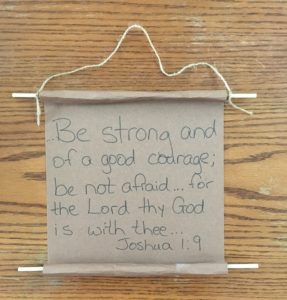 ...Be strong and
of a good courage;
be not afraid... for
the Lord thy God
is with thee...
Joshua 1:9